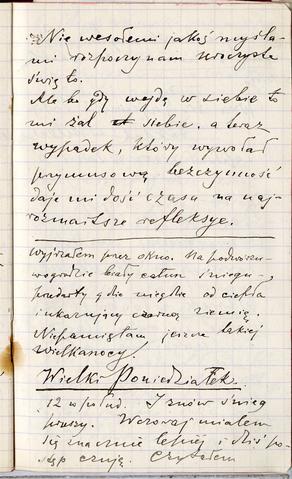 Nie wesołemi jakoś myśla-
mi rozpoczynam uroczyste
święto.
Ale bo gdy wejdę w siebie to
mi żal siebie. a teraz
wypadek, który wywołał
przymusową bezczynność
daje mi dość czasu na naj-
rozmaitsze refleksye.
Wyjrzałem przez okno. Na podwórzu
biały całun śniegu,
podarty gdzie niegdzie od ciepła
ukazujący czarną ziemię.
Niepamiętam jeszcze takiej
wielkanocy.
Wielki Poniedziałek.
12 w połud. I znów śnieg
prószy. Wczoraj miałem
się znacznie lepiej i dziś po-
stęp czuję. Czytałem